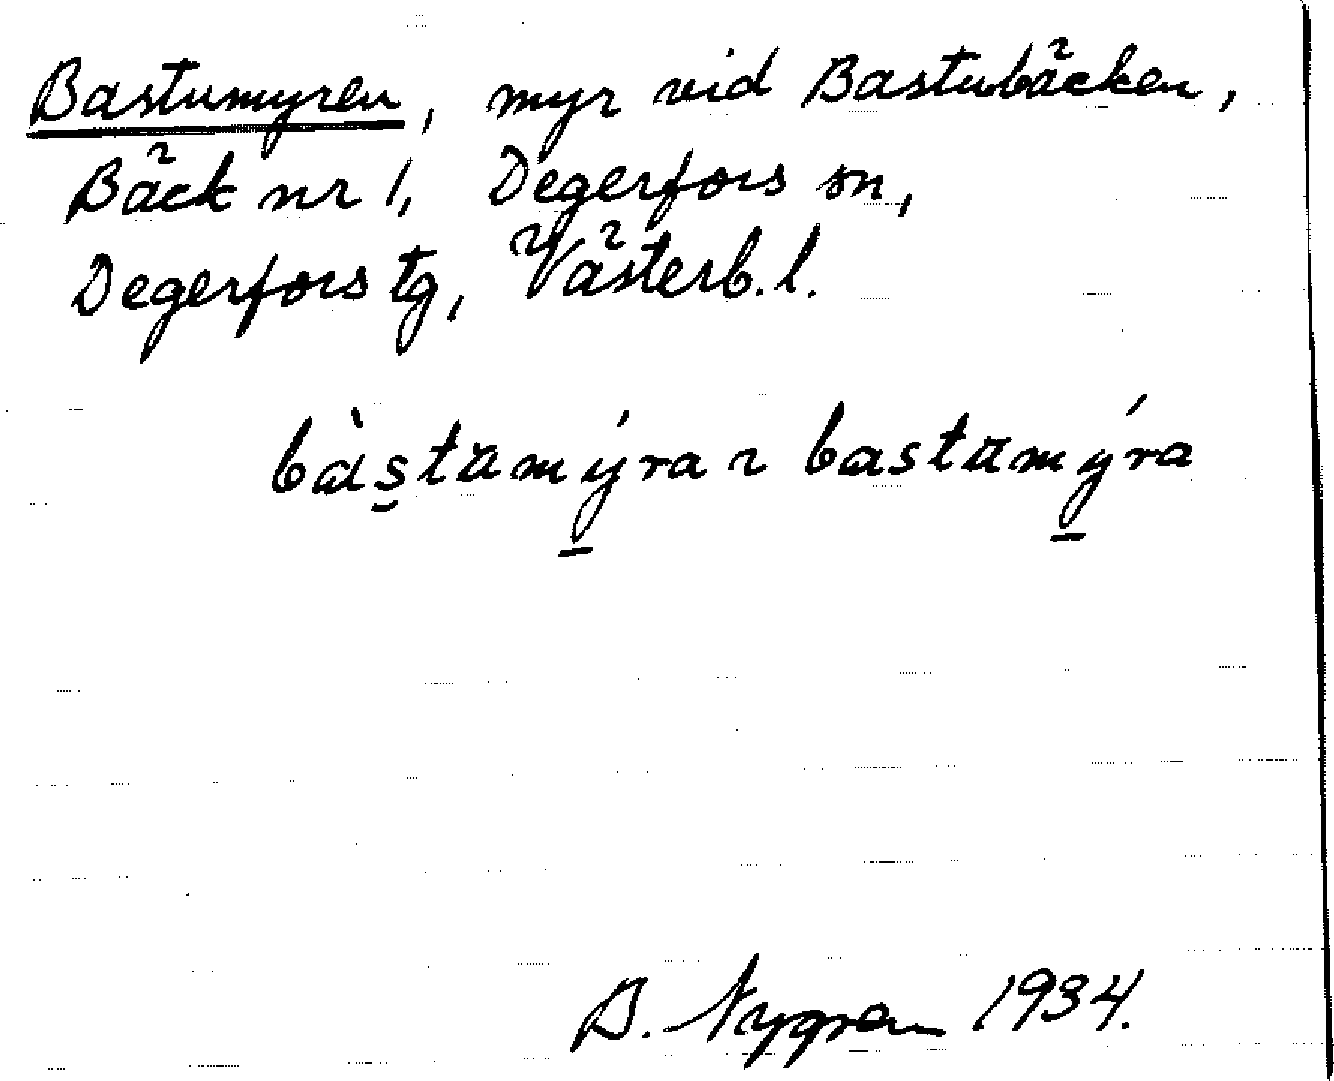 Bastumyren, myr vid Bastubäcken,
Bäck nr 1, Degerfors sn,
Degerfors tg, Västerb. l.
bàstumýra ~ bastumýra
B. Nygren 1934.